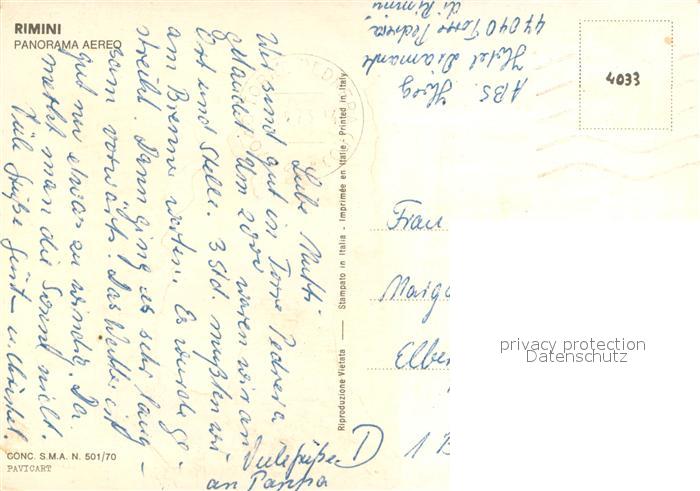 RIMINI
PANORAMA AEREO
Liebe Mutti
Wir sind gut in Torre Pedrera
gelandet. Um 200 waren wir an
Ort und Stelle. 3 Std. mußten wir
am Brenner warten. Es wurde ge-
streikt. Dann ging es sehr lang-
sam vorwärts. Das Wetter ist
gut nur etwas zu windig. Da
merkt man die Sonne nicht.
Viele Grüße Gerit u. Christel.
Viele Grüße
an Pappa
CONC. S.M.A. N. 501/70
PAVICART
Riproduzione Vietata
Stampato in Italia - Imprimée en Italie - Printed in Italy
ABS.
Hotel Diamante
47040 Torre Pedrera
di Rimini
4033
Frau
Marga
Elber
D
1 B
privacy protection
Datenschutz